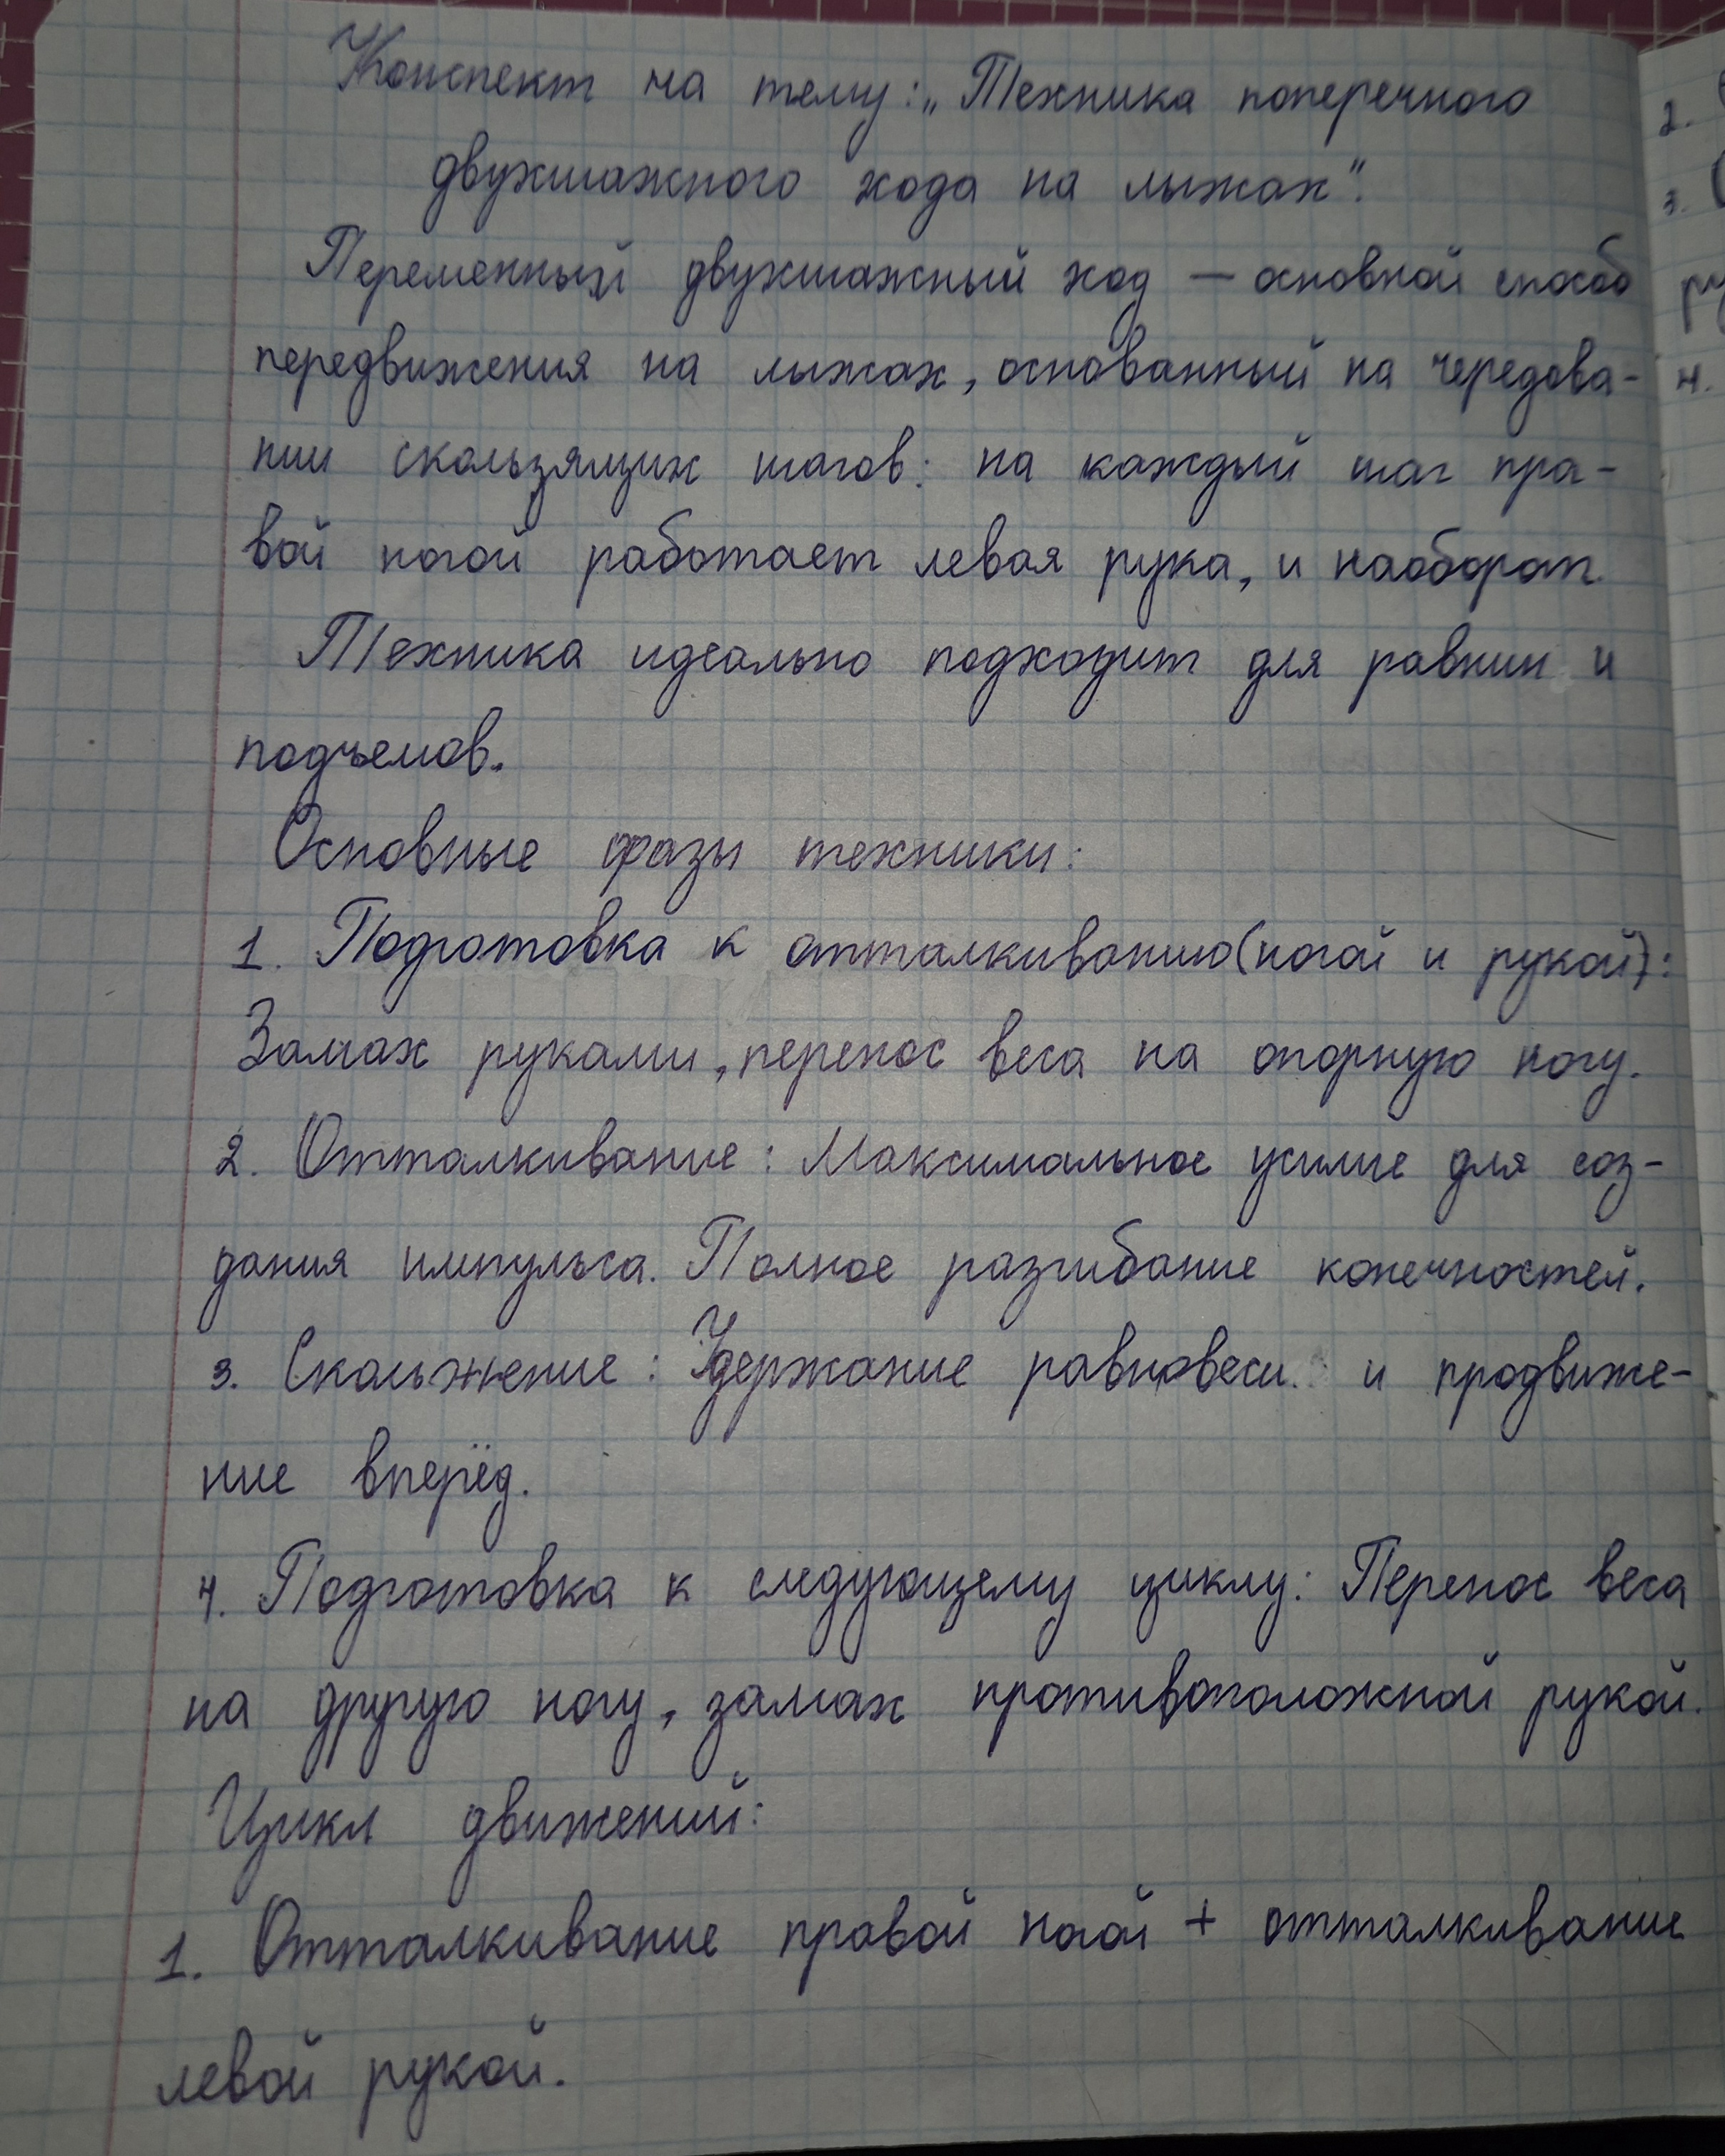 Конспект на тему: „Техника поперечного
двухшажного хода на лыжах".
Переменный двухшажный ход — основной способ
передвижения на лыжах, основанный на чередова-
нии скользящих шагов: на каждый шаг пра-
вой ногой работает левая рука, и наоборот.
Техника идеально подходит для равнин и
подъемов.
Основные фазы техники:
1. Подготовка к отталкиванию (ногой и рукой):
Замах руками, перенос веса на опорную ногу.
2. Отталкивание: Максимальное усилие для соз-
дания импульса. Полное разгибание конечностей.
3. Скольжение: Удержание равновеси и продвиже-
ние вперёд.
4. Подготовка к следующему циклу: Перенос веса
на другую ногу, замах противоположной рукой.
Цикл движений:
1. Отталкивание правой ногой + отталкивание
левой рукой.
2.
3.
ру
4.